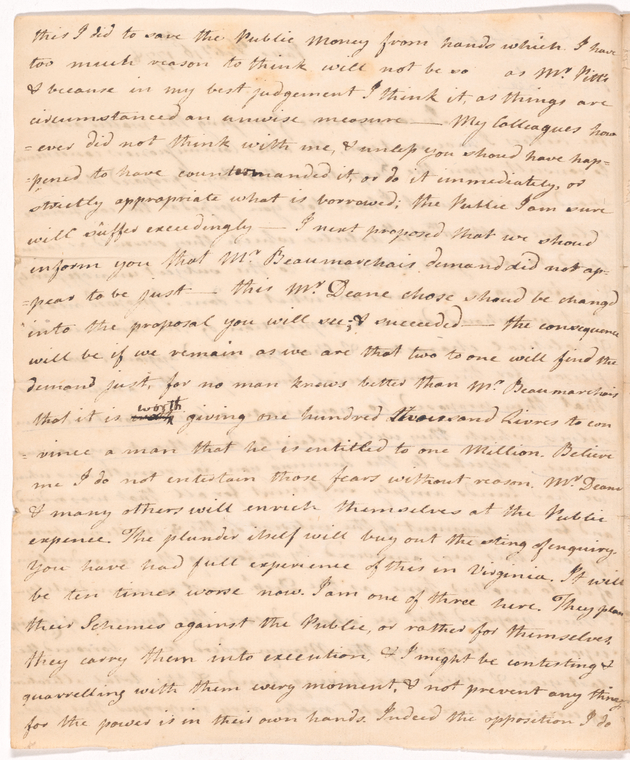 this I did to save the Public Money from hands which I have
too much reason to think will not be so as Mr. Pitt's
& because in my best judgement I think it, as things are
circumstanced an unwise measure — My Colleagues how
=ever did not think with me, & unless you should have hap=
=pened to have countermanded it or do it immediately, or
strictly appropriate what is borrowed; the Public I am sure
will suffer exceedingly — I next proposed that we should
inform you that Mr. Beaumarchais demand did not ap=
=pear to be just — this Mr. Deane chose should be changd
into the proposal you will see, & succeeded — the consequence
will be if we remain as we are that two to one will find the
demand just, for no man knows better than Mr. Beaumarchais
that it is worth giving one hundred Thousand Livres to con
=vince a man that he is entitled to one Million. Believe
me I do not entertain those fears without reason. Mr. Deane
& many others will enrich themselves at the Public
expence. The plunder itself will buy out the sting of enquiry.
You have had full experience of this in Virginia. It will
be ten times worse now. I am one of three here. They plan
their Schemes against the Public, or rather for themselves,
they carry them into execution, & I might be contesting &
quarrelling with them every moment, & not prevent any thing
for the power is in their own hands. Indeed the opposition I do